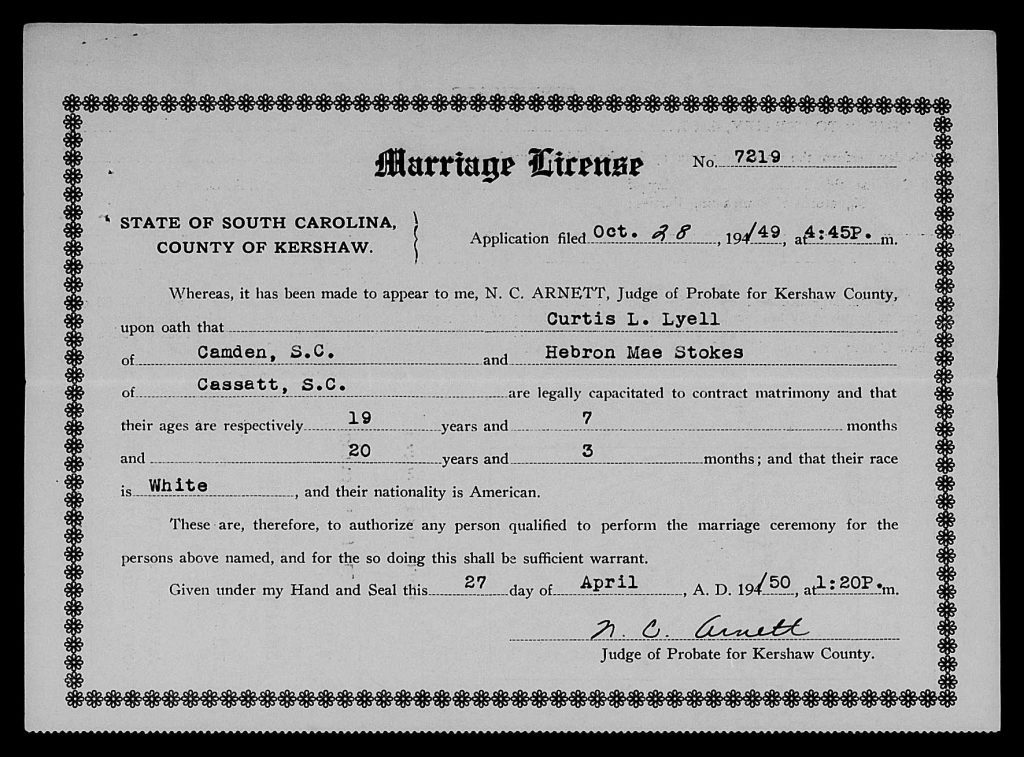 Marriage License No. 7219
STATE OF SOUTH CAROLINA,
COUNTY OF KERSHAW.
Application filed Oct. 28, 194/49, at 4:45P.m.
Whereas, it has been made to appear to me, N. C. ARNETT, Judge of Probate for Kershaw County,
upon oath that Curtis L. Lyell
of Camden, S.C. and Hebron Mae Stokes
of Cassatt, S.C. are legally capacitated to contract matrimony and that
their ages are respectively 19 years and 7 months
and 20 years and 3 months; and that their race
is White, and their nationality is American.
These are, therefore, to authorize any person qualified to perform the marriage ceremony for the
persons above named, and for the so doing this shall be sufficient warrant.
Given under my Hand and Seal this 27 day of April, A. D. 194/50, at 1:20P.m.
N. C. Arnett
Judge of Probate for Kershaw County.